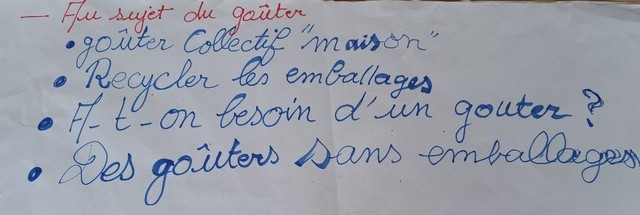 — Au sujet du goûter
• goûter Collectif "maison"
• Recycler les emballages
• A-t-on besoin d'un gouter ?
• Des goûters sans emballages